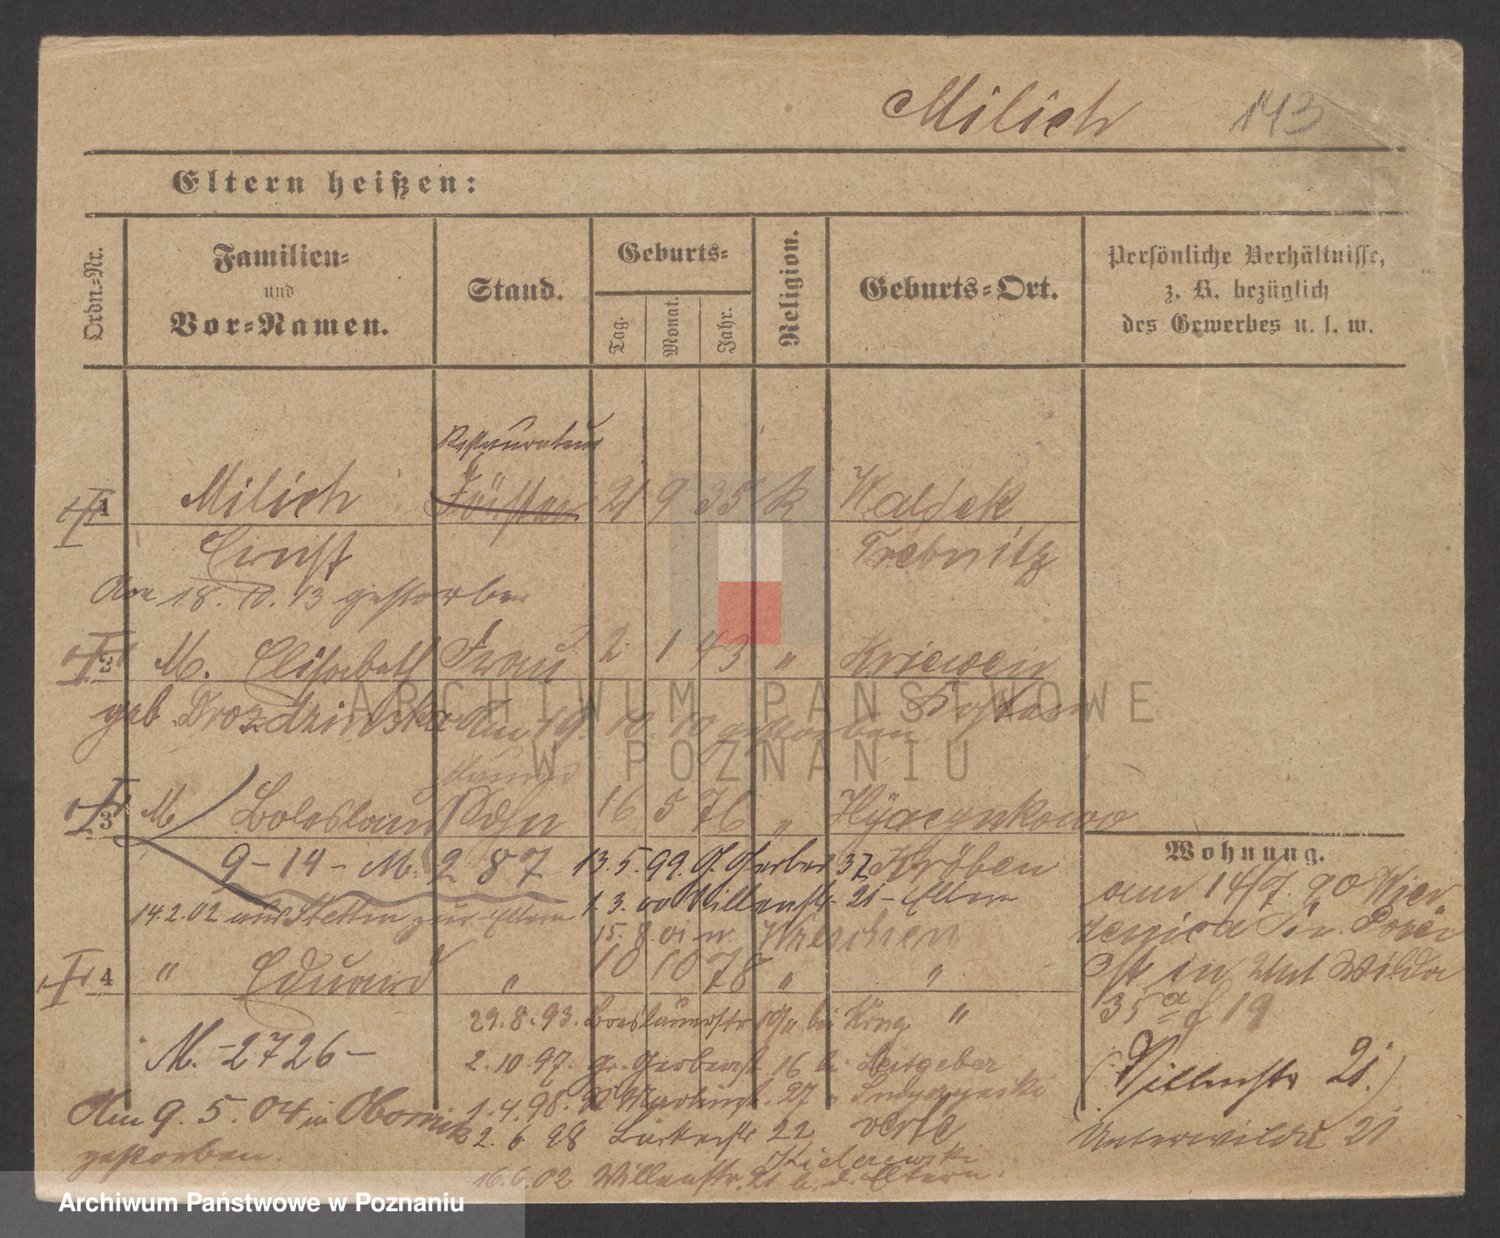 Milich 143
Eltern heißen:
Ordn.-Nr.
Familien-
und
Vor-Namen.
Stand.
Geburts-
Tag.
Monat.
Jahr.
Religion.
Geburts-Ort.
Persönliche Verhältnisse,
z. B. bezüglich
des Gewerbes u. s. w.
Restaurateur
1 Milich Förster 21 9 35 k Waldek
Ernst Trebnitz
Am 18. 10. 13 gestorben
2 M. Elisabeth Frau 2 1 43 " Kriewen
geb. Drozdzinska Am 19. 10. 10 gestorben Kosten
3 M. Boleslaus Sohn 16 5 76 " Hyacynkowo
9-14-M. 287 13.5.99. Gerber 37 Kröben
14.2.02 aus Stettin zur Eltern 1.3.00 Villenstr. 21 - Eltern
15.8.01 n. Wreschen
4 " Eduard " 10 10 78 " "
29.8.93. Breslauerstr bei "
M. -2726- 2.10.97. gr. Gerberst 16 b. Leitgeber
Am 9. 5. 04 in Obornik 1.4.98. 27
gestorben. 2. 6. 98 Bäckerstr 22
16.6.02 Villenstr. 21 b. d. Eltern.
Wohnung.
am 14/7. 90
in
in Wilda
35a f 19
(Villenstr 21.)
Unterwilda 21
ARCHIWUM PAŃSTWOWE
W POZNANIU
Archiwum Państwowe w Poznaniu